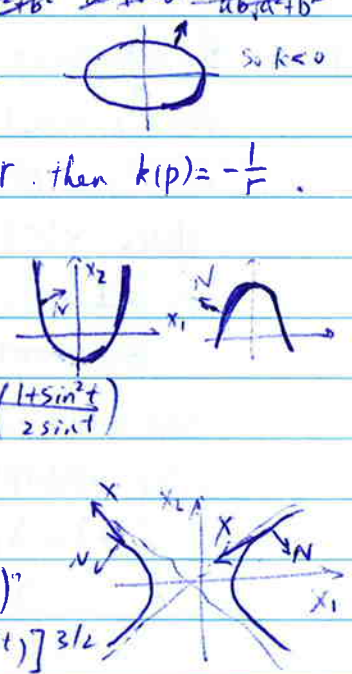 So k<0
r. then k(p) = -1/r.
x₂
N
x₁
N
(1+sin²t / 2sint)
X
x₂
X
N
N
x₁
)"
t)]^3/2